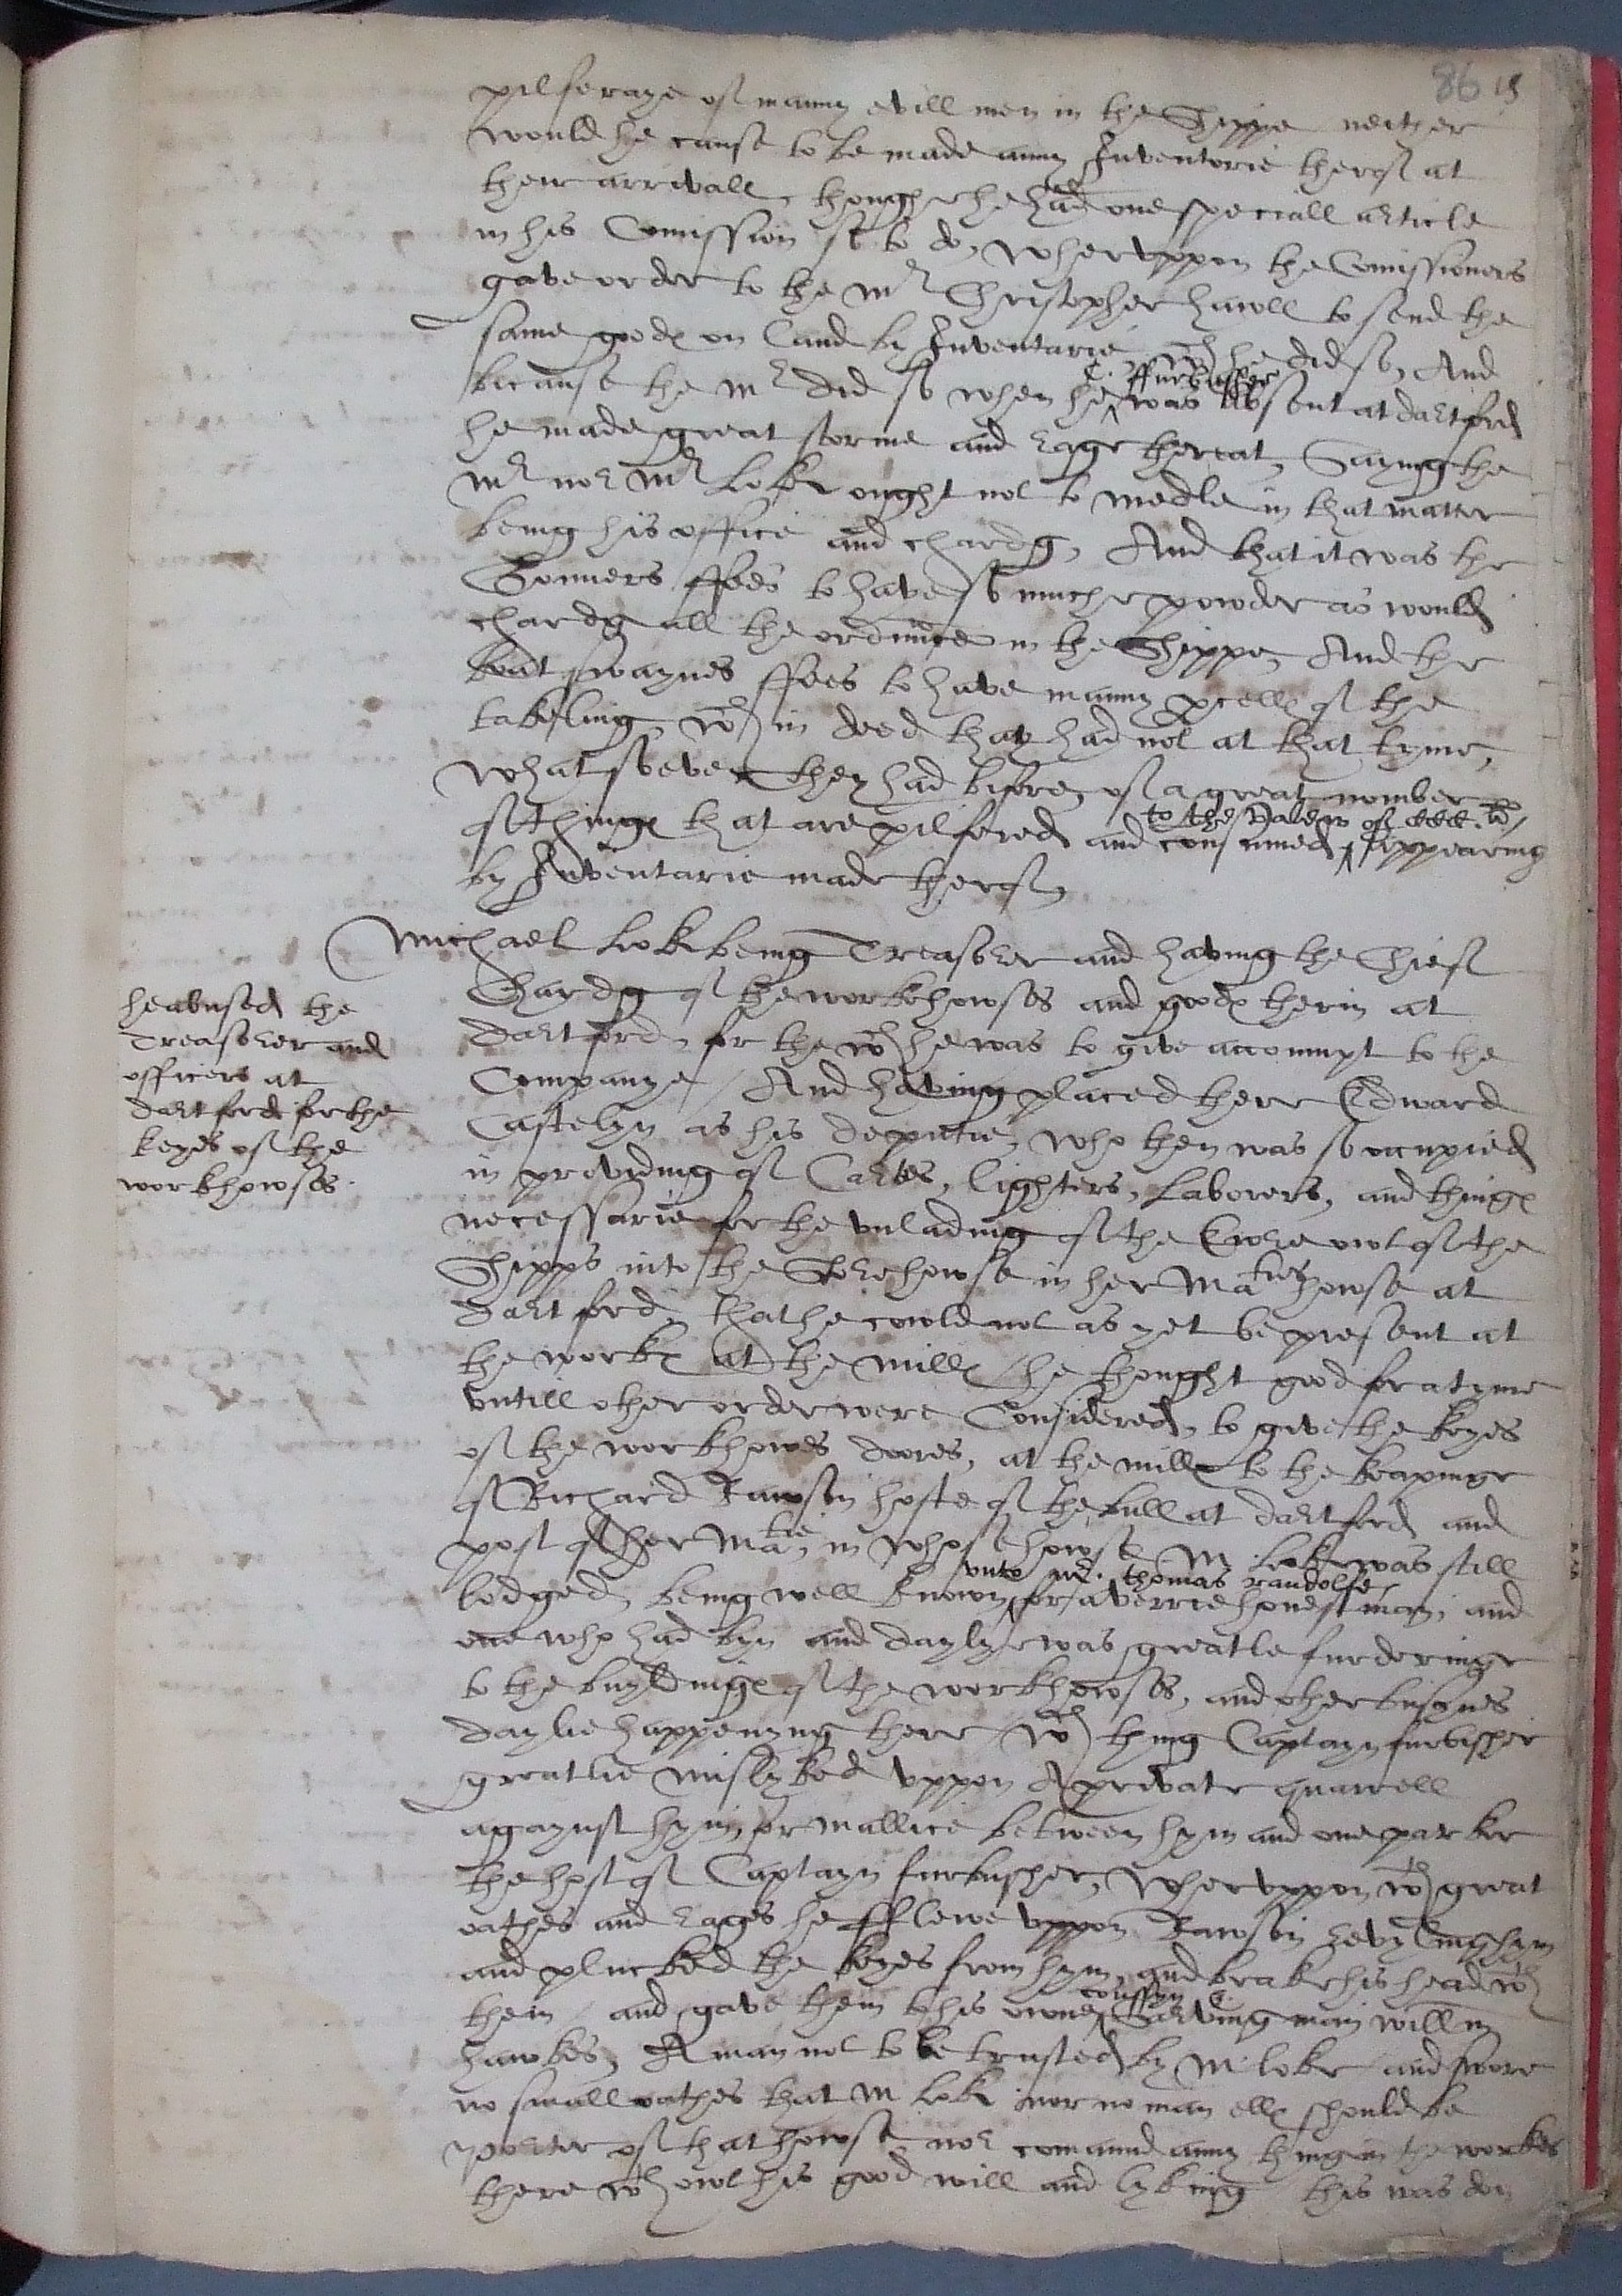 86 15
pilferaye of manny evill men in the Shippe neither
would he cause to be made anny Inventorie therof at
their arrivall, thoughe he had one speciall article
in his Comission so to do, wheruppon the Comissioners
gave order to the Mr Christopher hawll to send the
same goodes on land by Inventarie, wch he did so, And
bicause the Mr did so when he ^C. ffurbusher was absent at dartford
he made great storme and rage therat, Sayingthe
Mr nor Mr Lokr ought not to medle in that matter
being his office and chardg, And that it was the
Gonners ffees to have so muche powder as would
chardg all the ordinnce in the Shippe, And the
boatswaynes ffees to have manny pcelles of the
takeling, wch in deed thay had not at that tyme,
whatsoever they had before, of a great nomber
of thinges that are pilfered and consumed ^to the Valew of CCC. li / Appearing
by Inventarie made therof,
Michael Lok being Treasorer and having the Chief
Chardg of the workhowses and goodes therin at
Dartford, for the wch he was to give accoumpt to the
Companye / And having placed there Edward
Castelyn as his deputie, who then was so occupied
in providing of Cartes, lighters, Laborers, and thinges
necessarie for the unlading of the Ewre owt of the
Shipps into the Storehowse in her Maties howse at
Dartford, that he cowld not as yet be present at
the workes at the milles / he thought good for a tyme
untill other order were Considered, to give the keyes
of the workhowes doores, at the milles to the keapinge
of Richard Rawson hoste of the bull at dartford and
post of her Matie, in whose howse M. Lok was still
lodged, being well known ^unto mr. thomas randolfe for a verrie honest man, and
one who had byn and daylye was greatle furderinge
to the buyldinges of the workhowses, and other busynes
daylie happenyng there / wch thing Captayn furbisher
greatlie mislyked uppon A private quarrell
agaynst hym, for mallice between hym and one parker
the host of Captayn furbusher, wheruppon, wth great
oathes and rages he fflewe uppon Rawson revylinghym
and plucked the keyes from hym, and brake his head wth
them / and gave them to his owne ^coussyn & Serving man willm
hawkes, A man not to be trusted by M. Lokr / and swore
no small oathes that M Lok nor no man elles should be
porter of that howse nor comaund anny thing in the workes
there wth owt his good will and lyking this was don
he abused the
Treasorer and
officers at
dartford for the
keyes of the
workhowses.